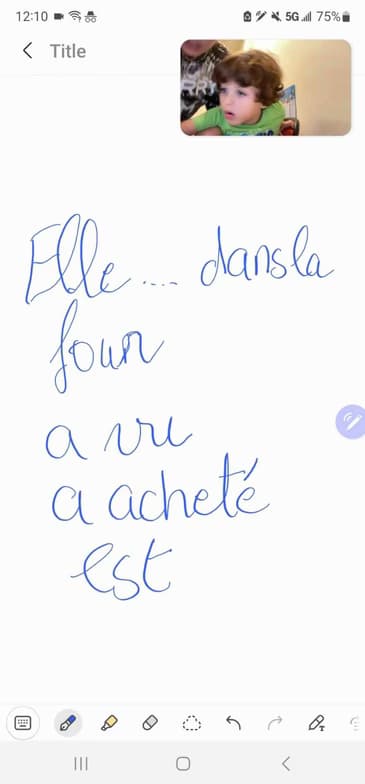 12:10 5G 75%
Title
Elle.... dans la
four
a vu
a acheté
est